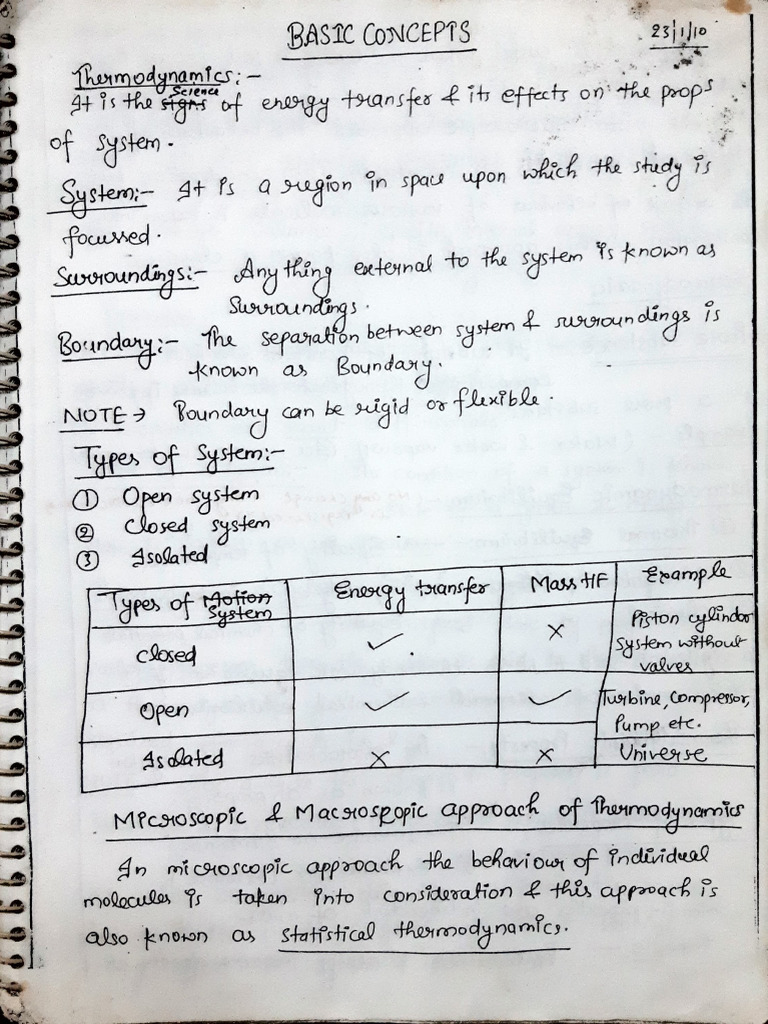 BASIC CONCEPTS
23/1/10
Thermodynamics:-
It is the Science of energy transfer & its effects on the props
of system.
System:- It is a region in space upon which the study is
focussed.
Surroundings:- Any thing external to the system is known as
Surroundings.
Boundary:- The separation between system & surroundings is
known as Boundary.
NOTE → Boundary can be rigid or flexible.
Types of System:-
① Open system
② Closed system
③ Isolated
Types of Motion System | Energy transfer | Mass HF | Example
Closed | ✓ | × | Piston cylindor system without valves
Open | ✓ | ✓ | Turbine, Compressor, Pump etc.
Isolated | × | × | Universe
Microscopic & Macroscopic approach of Thermodynamics
In microscopic approach the behaviour of individual
molecules is taken into consideration & this approach is
also known as statistical thermodynamics.